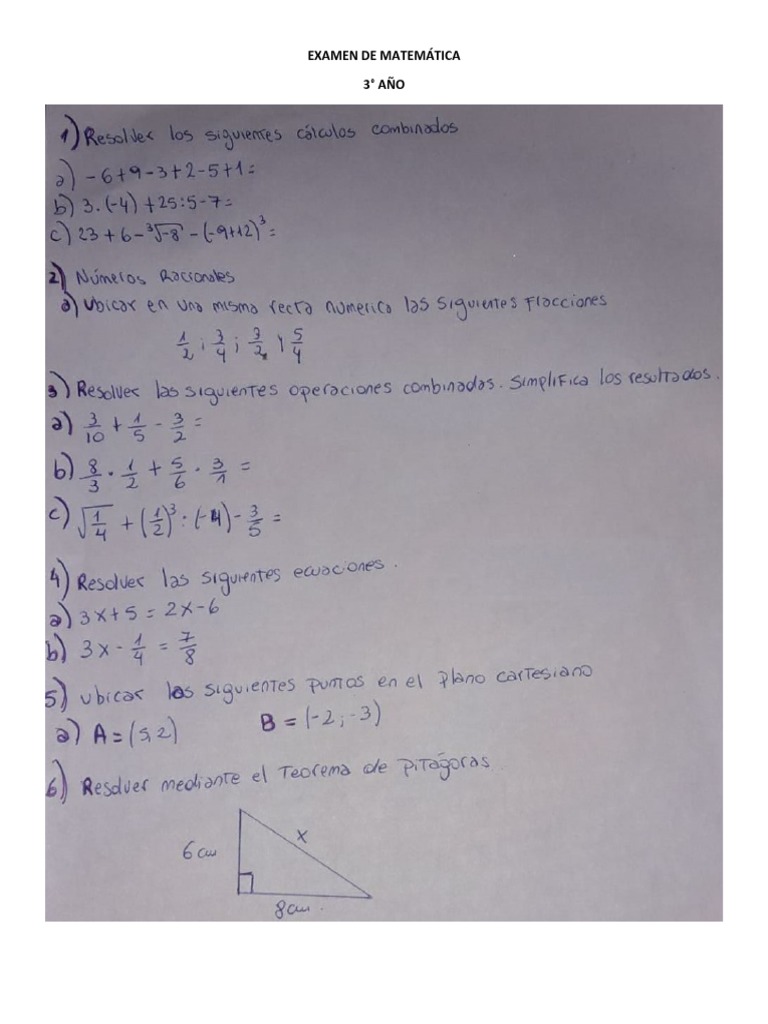 EXAMEN DE MATEMÁTICA
3° AÑO
1) Resolver los siguientes cálculos combinados
a) -6+9-3+2-5+1=
b) 3.(-4)+25:5-7=
c) 23+6-³√-8 -(-9+12)³=
2) Números Racionales
a) Ubicar en una misma recta numerica las siguientes Fracciones
1/2 ; 3/4 ; 3/2 y 5/4
3) Resolver las siguientes operaciones combinadas. Simplifica los resultados.
a) 3/10 + 1/5 - 3/2 =
b) 8/3 . 1/2 + 5/6 . 3/1 =
c) √1/4 + (1/2)³ : (-4) - 3/5 =
4) Resolver las siguientes ecuaciones.
a) 3x+5 = 2x-6
b) 3x - 1/4 = 7/8
5) ubicar los siguientes puntos en el plano cartesiano
a) A = (5,2) B = (-2;-3)
6) Resolver mediante el Teorema de Pitágoras
6 cm x
8 cm.